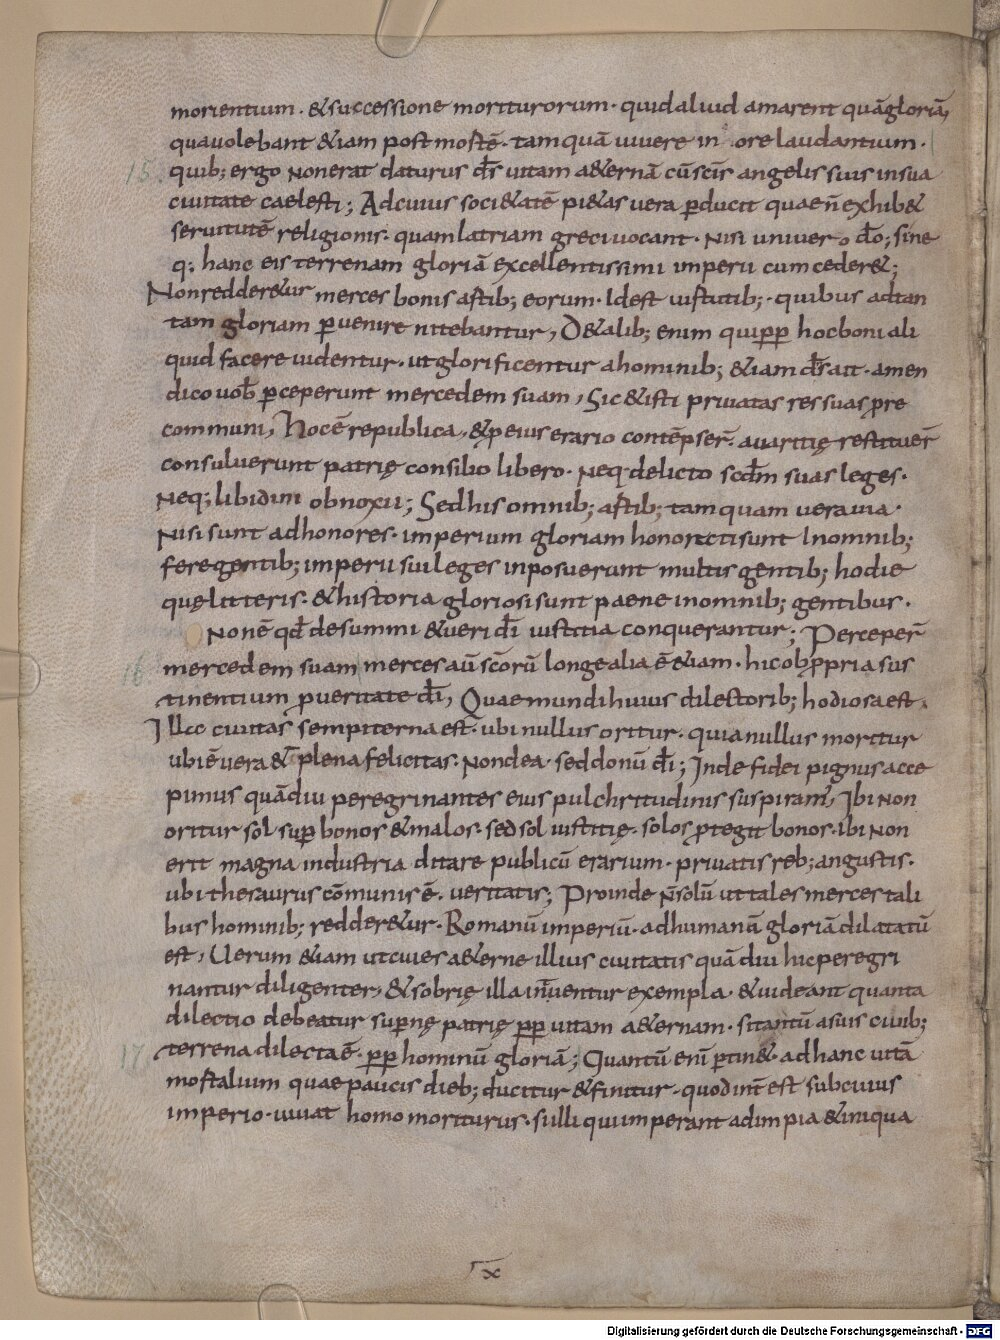 morientium · & successione moriturorum · quid aliud amarent quā gloriā,
qua uolebant &iam post mortē · tam quā uiuere in ore laudantium ·
15. quib; ergo non erat daturus d̄s uitam a&ernā cū sc̄is angelis suis in sua
ciuitate caelesti; Ad cuius soci&atē pi&as uera ꝑducit quae n̄ exhib&
seruitutē religionis · quam latriam greci uocant · Nisi uni uero d̄o; sine
q; hanc eis terrenam gloriā excellentissimi imperii cum ceder&;
Non redder&ur merces bonis artib; eorum · Id est uirtutib; · quibus ad tan
tam gloriam ꝑuenire nitebantur, De talib; enim qui ꝓꝑ hoc boni ali
quid facere uidentur · ut glorificentur ab hominib; &iam d̄s ait · amen
dico uob̄ ꝑceperunt mercedem suam, Sic & isti priuatas res suas ꝓ re
communi, Hoc ē republica, & ꝓ eius erario contēpser̄ · auaritię restituer̄
consuluerunt patrię consilio libero · Neq· delicto scd̄m suas leges ·
Neq; libidini obnoxii; Sed his omnib; artib; tamquam uera uia ·
Nisi sunt ad honores · imperium gloriam honorati sunt In omnib;
fere gentib; imperii sui leges inposuerunt multis gentib; hodie
quę litteris · & historia gloriosi sunt paene in omnib; gentibus ·
Non ē qd̄ de summi & ueri d̄i iustitia conquerantur; Perceper̄
16. mercedem suam merces aū sc̄orū longe alia ē &iam · hic obꝓpria sus
tinentium ꝓ ueritate d̄i, Quae mundi huius dilectorib; hodiosa est,
Illa ciuitas sempiterna est · ubi nullus oritur · quia nullus moritur
ubi ē uera & plena felicitas · Non dea · sed donū d̄i; Inde fidei pignus acce
pimus quādiu peregrinantes eius pulchritudinis suspiram̄, Ibi non
oritur sol suꝑ bonos & malos · sed sol iustitię · solos ꝓtegit bonos · ibi non
erit magna industria ditare publicū erarium · priuatis reb; angustis ·
ubi thesaurus cōmunis ē · ueritatis; Proinde n̄ solū ut tales merces tali
bus hominib; redder&ur · Romanū imperiū · ad humanā gloriā dilatatū
est, Uerum &iam ut ciues a&erne illius ciuitatis quādiu hic peregri
nantur diligenter, & sobrię illa inuentur exempla · & uideant quanta
dilectio debeatur suꝑnę patrię ꝓꝑ uitam a&ernam · si tantū a suis ciuib;
17 terrena dilecta ē · ꝓꝑ hominū gloriā; Quantū eni ꝑtin& · ad hanc uitā
mortalium quae paucis dieb; ducitur & finitur · quod int̄ est sub cuius
imperio · uiuat homo moriturus · si illi qui imperant ad impia & iniqua
x
Digitalisierung gefördert durch die Deutsche Forschungsgemeinschaft · DFG